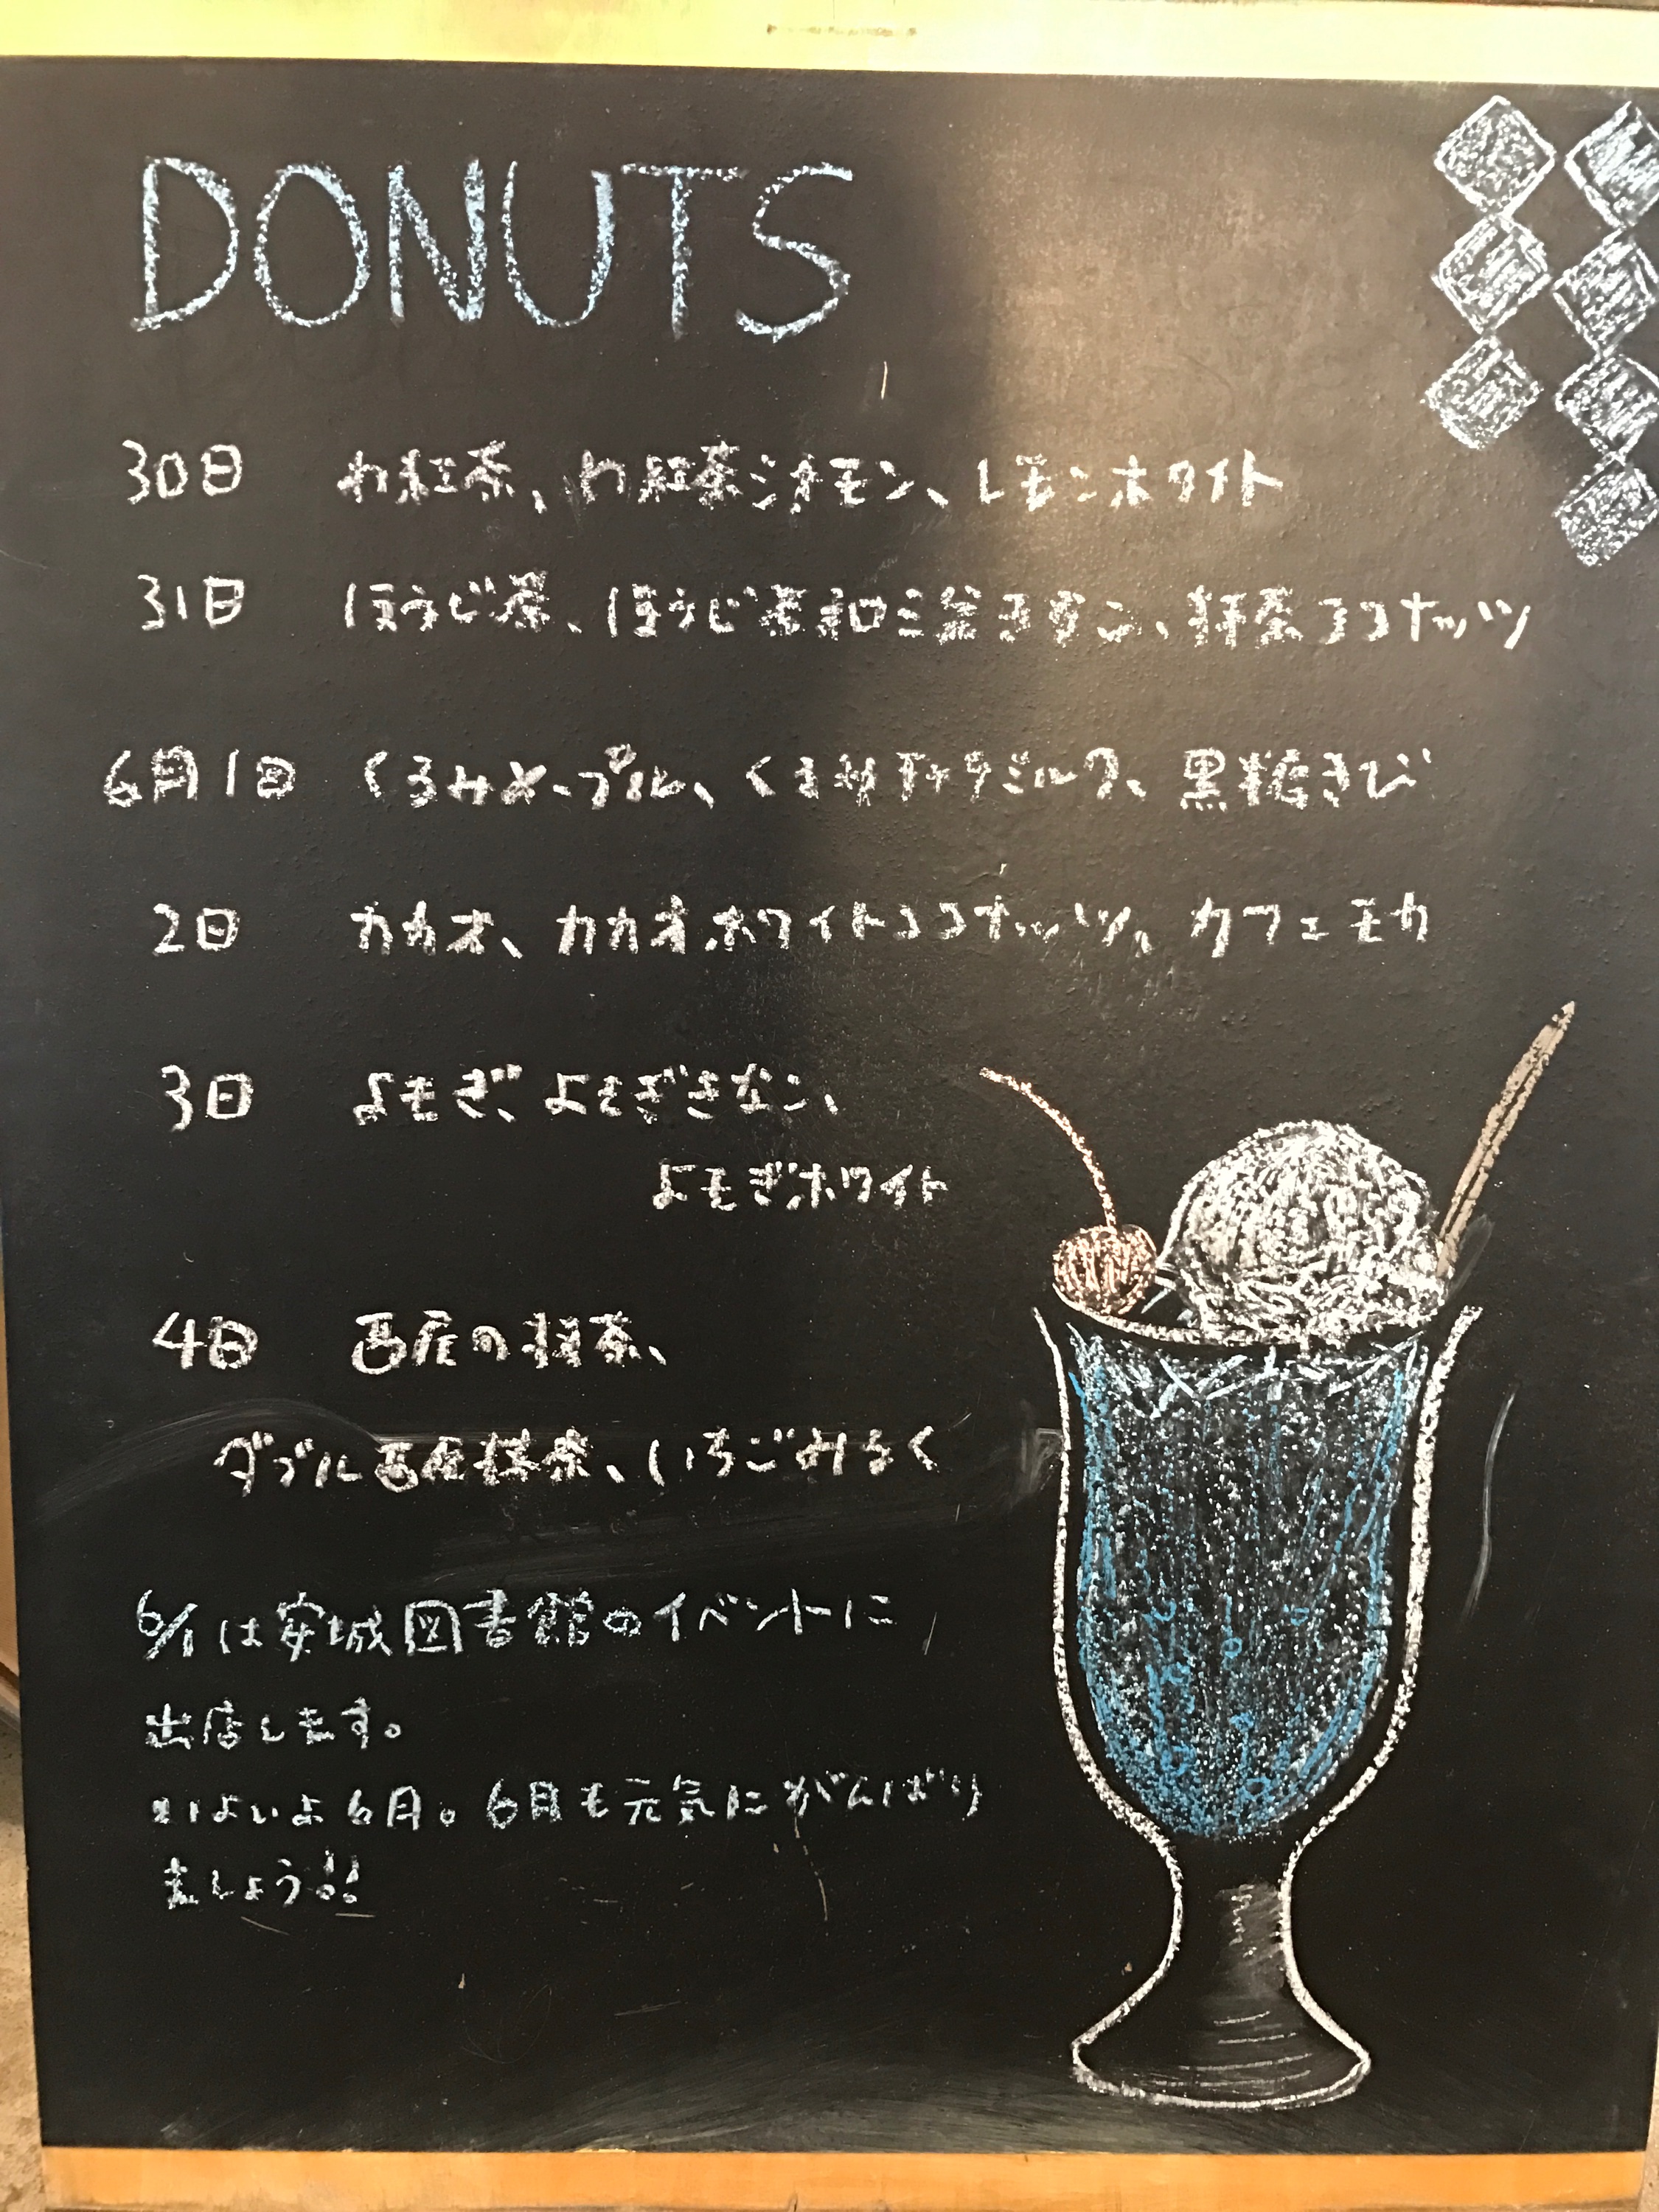 DONUTS
30日 わ紅茶、わ紅茶シナモン、レモンホワイト
31日 ほうじ茶、ほうじ茶和三盆きなこ、抹茶ココナッツ
6月1日 くるみメープル、くるみキャラミルク、黒糖きび
2日 カカオ、カカオホワイトココナッツ、カフェモカ
3日 よもぎ、よもぎきなこ、
よもぎホワイト
4日 西尾の抹茶、
ダブル西尾抹茶、いちごみるく
6/1は安城図書館のイベントに
出店します。
いよいよ6月。6月も元気にがんばり
ましょう!!